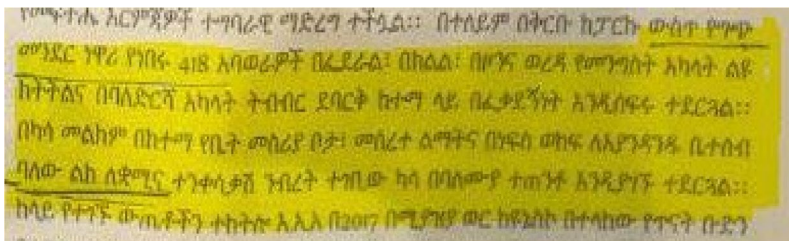 የመፍትሔ እርምጃዎች ተግባራዊ ማድረግ ተችሏል። በተለይም በቅርቡ ከፓርኩ ውስጥ የግጭ
መንደር ነዋሪ የነበሩ 418 አባወራዎች በፌደራል፣ በክልል፣ በዞንና ወረዳ የመንግስት አካላት ልዩ
ክትትልና በባለድርሻ አካላት ትብብር ደባርቅ ከተማ ላይ በፈቃደኝነት እንዲሰፍሩ ተደርጓል።
በካሳ መልክም በከተማ የቤት መስሪያ ቦታ፣ መሰረተ ልማትና በነፍስ ወከፍ ለእያንዳንዱ ቤተሰብ
ባለው ልክ ለቋሚና ተንቀሳቃሽ ንብረት ተገቢው ካሳ በባለሙያ ተጠንቶ እንዲያገኙ ተደርጓል።
ከላይ የተገኙ ውጤቶችን ተከትሎ እ.ኤ.አ በ2017 በሚያዝያ ወር ከዩኔስኮ በተላከው የጥናት ቡድን